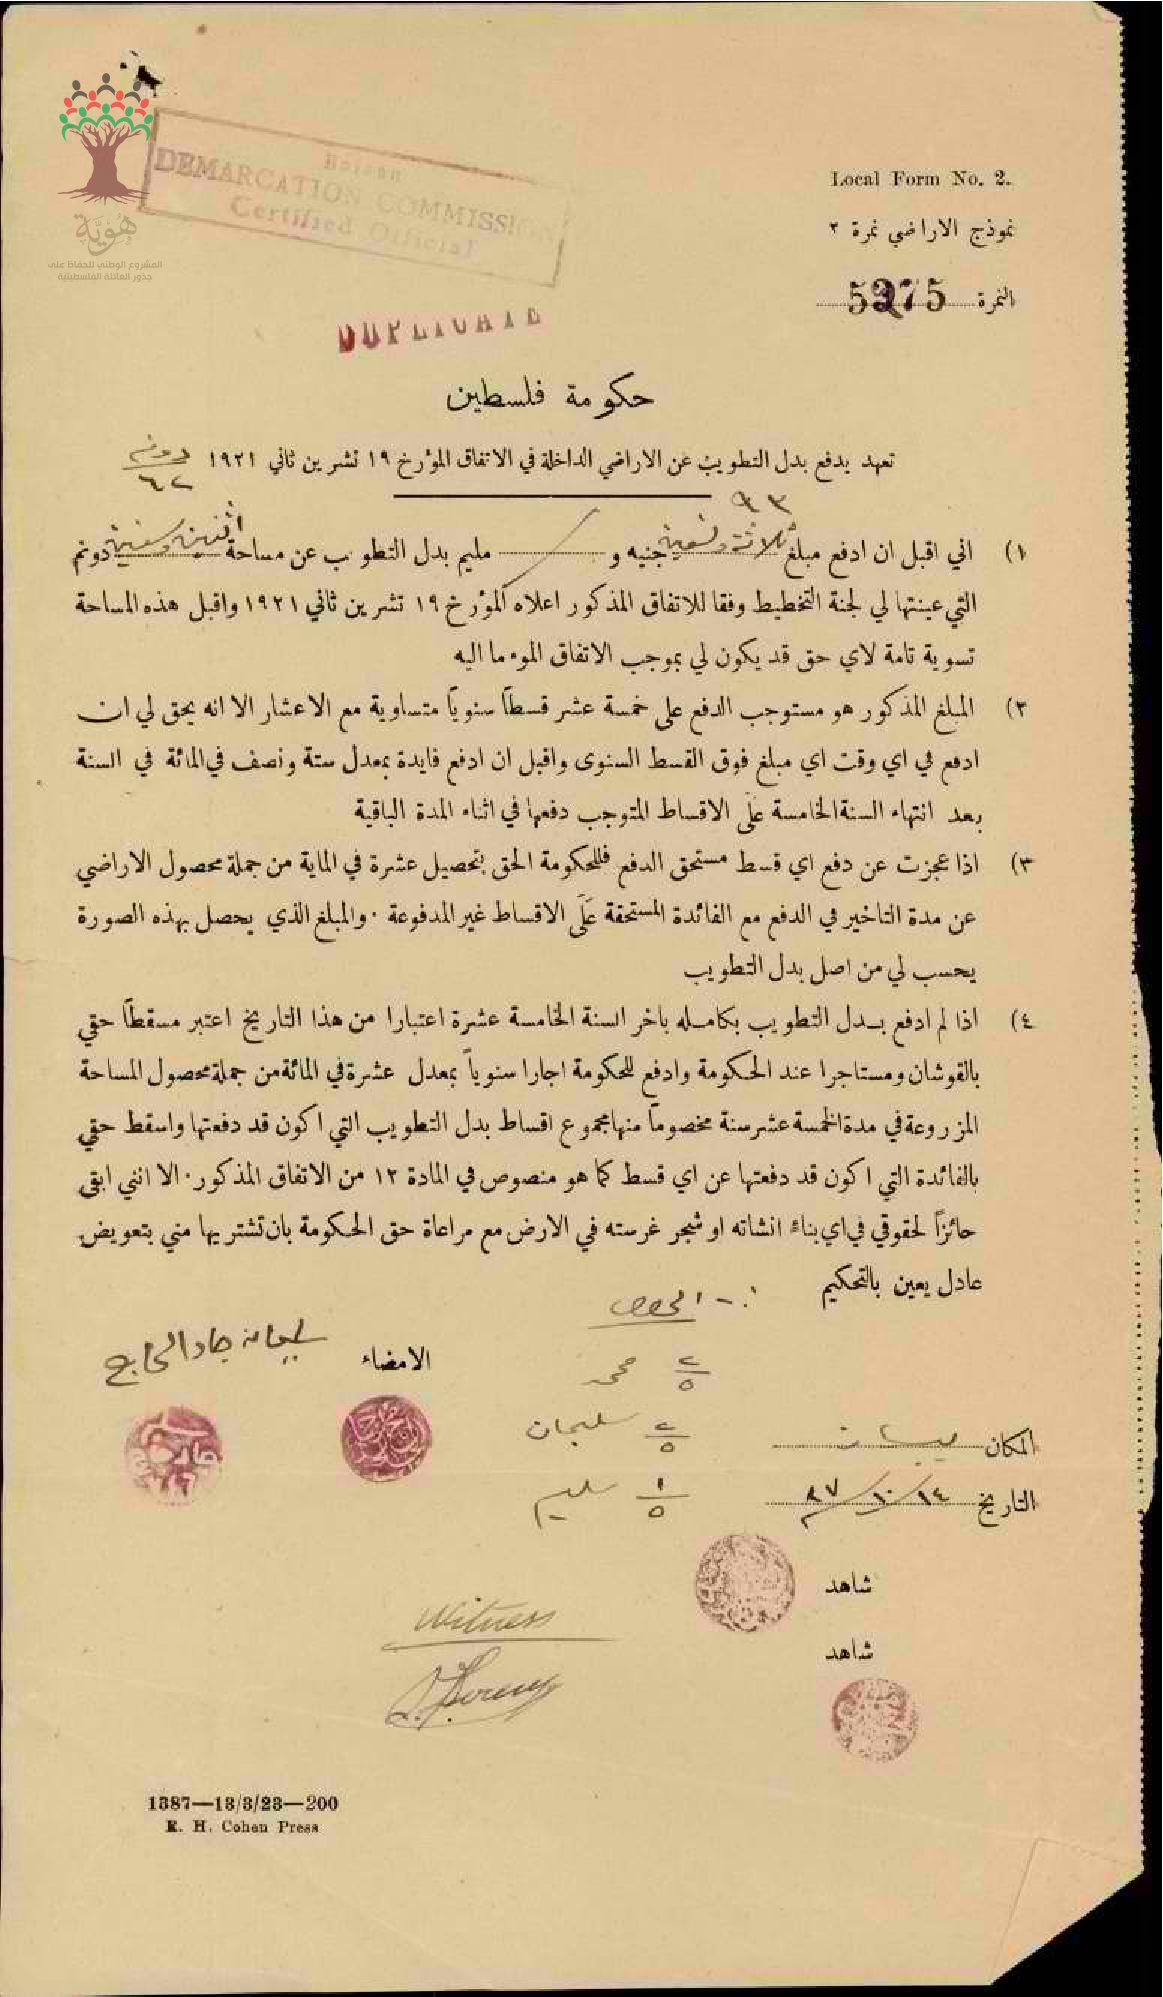 هُوِيَّة
المشروع الوطني للحفاظ على
جذور العائلة الفلسطينية
Beisan
DEMARCATION COMMISSION
Certified Official
Local Form No. 2.
نموذج الاراضي نمرة ٢
النمرة 5375
DUPLICATE
حكومة فلسطين
تعهد بدفع بدل التطويب عن الاراضي الداخلة في الاتفاق المؤرخ ١٩ تشرين ثاني ١٩٢١
دونم
٦٢
٩٣
١) اني اقبل ان ادفع مبلغ ثلاثة وتسعين جنيه و مليم بدل التطويب عن مساحة اثنين وستين دونم
التي عينتها لي لجنة التخطيط وفقا للاتفاق المذكور اعلاه المؤرخ ١٩ تشرين ثاني ١٩٢١ واقبل هذه المساحة
تسوية تامة لاي حق قد يكون لي بموجب الاتفاق الموءما اليه
٢) المبلغ المذكور هو مستوجب الدفع على خمسة عشر قسطاً سنوياً متساوية مع الاعشار الا انه يحق لي ان
ادفع في اي وقت اي مبلغ فوق القسط السنوى واقبل ان ادفع فايدة بمعدل ستة ونصف في المائة في السنة
بعد انتهاء السنة الخامسة عَلَى الاقساط المتوجب دفعها في اثناء المدة الباقية
٣) اذا عجزت عن دفع اي قسط مستحق الدفع فللحكومة الحق بتحصيل عشرة في الماية من جملة محصول الاراضي
عن مدة التاخير في الدفع مع الفائدة المستحقة عَلَى الاقساط غير المدفوعة . والمبلغ الذي يحصل بهذه الصورة
يحسب لي من اصل بدل التطويب
٤) اذا لم ادفع بـدل التطويب بكامـله باخر السنة الخامسة عشرة اعتبارا من هذا التاريخ اعتبر مسقطاً حقي
بالقوشان ومستاجرا عند الحكومة وادفع للحكومة اجارا سنوياً بمعدل عشرة في المائة من جملة محصول المساحة
المزروعة في مدة الخمسة عشر سنة مخصوماً منها مجموع اقساط بدل التطويب التي اكون قد دفعتها واسقط حقي
بالفائدة التي اكون قد دفعتها عن اي قسط كما هو منصوص في المادة ١٢ من الاتفاق المذكور . الا انني ابقى
حائزاً لحقوقي في اي بناء انشاته او شجر غرسته في الارض مع مراعاة حق الحكومة بان تشتريها مني بتعويض
عادل يعين بالتحكيم
الحصص
٢/٥ محمد
٢/٥ سليمان
١/٥ سليم
الامضاء سليمان جاد الحاج
المكان بيسان
التاريخ ١٤/١٠/٢٧
شاهد
شاهد
Witness
1387—13/3/23—200
R. H. Cohen Press